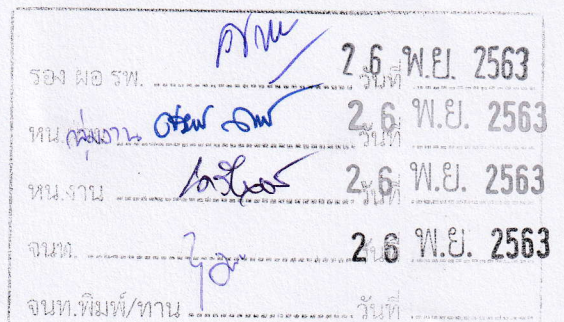 รอง ผอ รพ. วันที่ 26 พ.ย. 2563
หน.กลุ่มงาน วันที่ 26 พ.ย. 2563
หน.งาน วันที่ 26 พ.ย. 2563
จนท. วันที่ 26 พ.ย. 2563
จนท.พิมพ์/ทาน วันที่